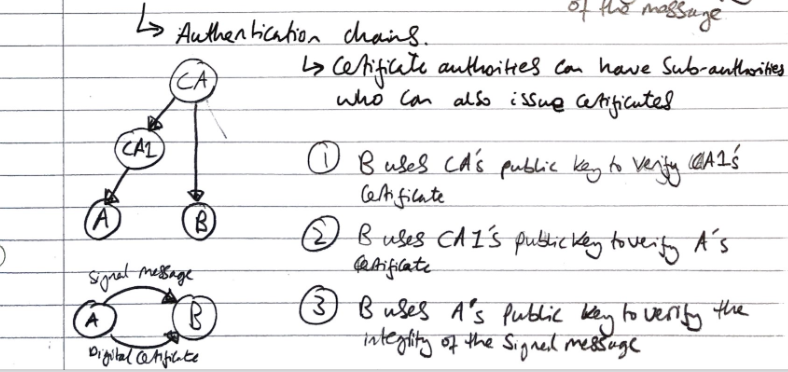 of the message
↳ Authentication chains.
↳ Certificate authorities can have Sub-authorities
who can also issue certificates
CA
CA1
A
B
① B uses CA's public key to verify CA1's
Certificate
② B uses CA1's public key to verify A's
Certificate
Signed message
A
B
Digital Certificate
③ B uses A's public key to verify the
integrity of the signed message